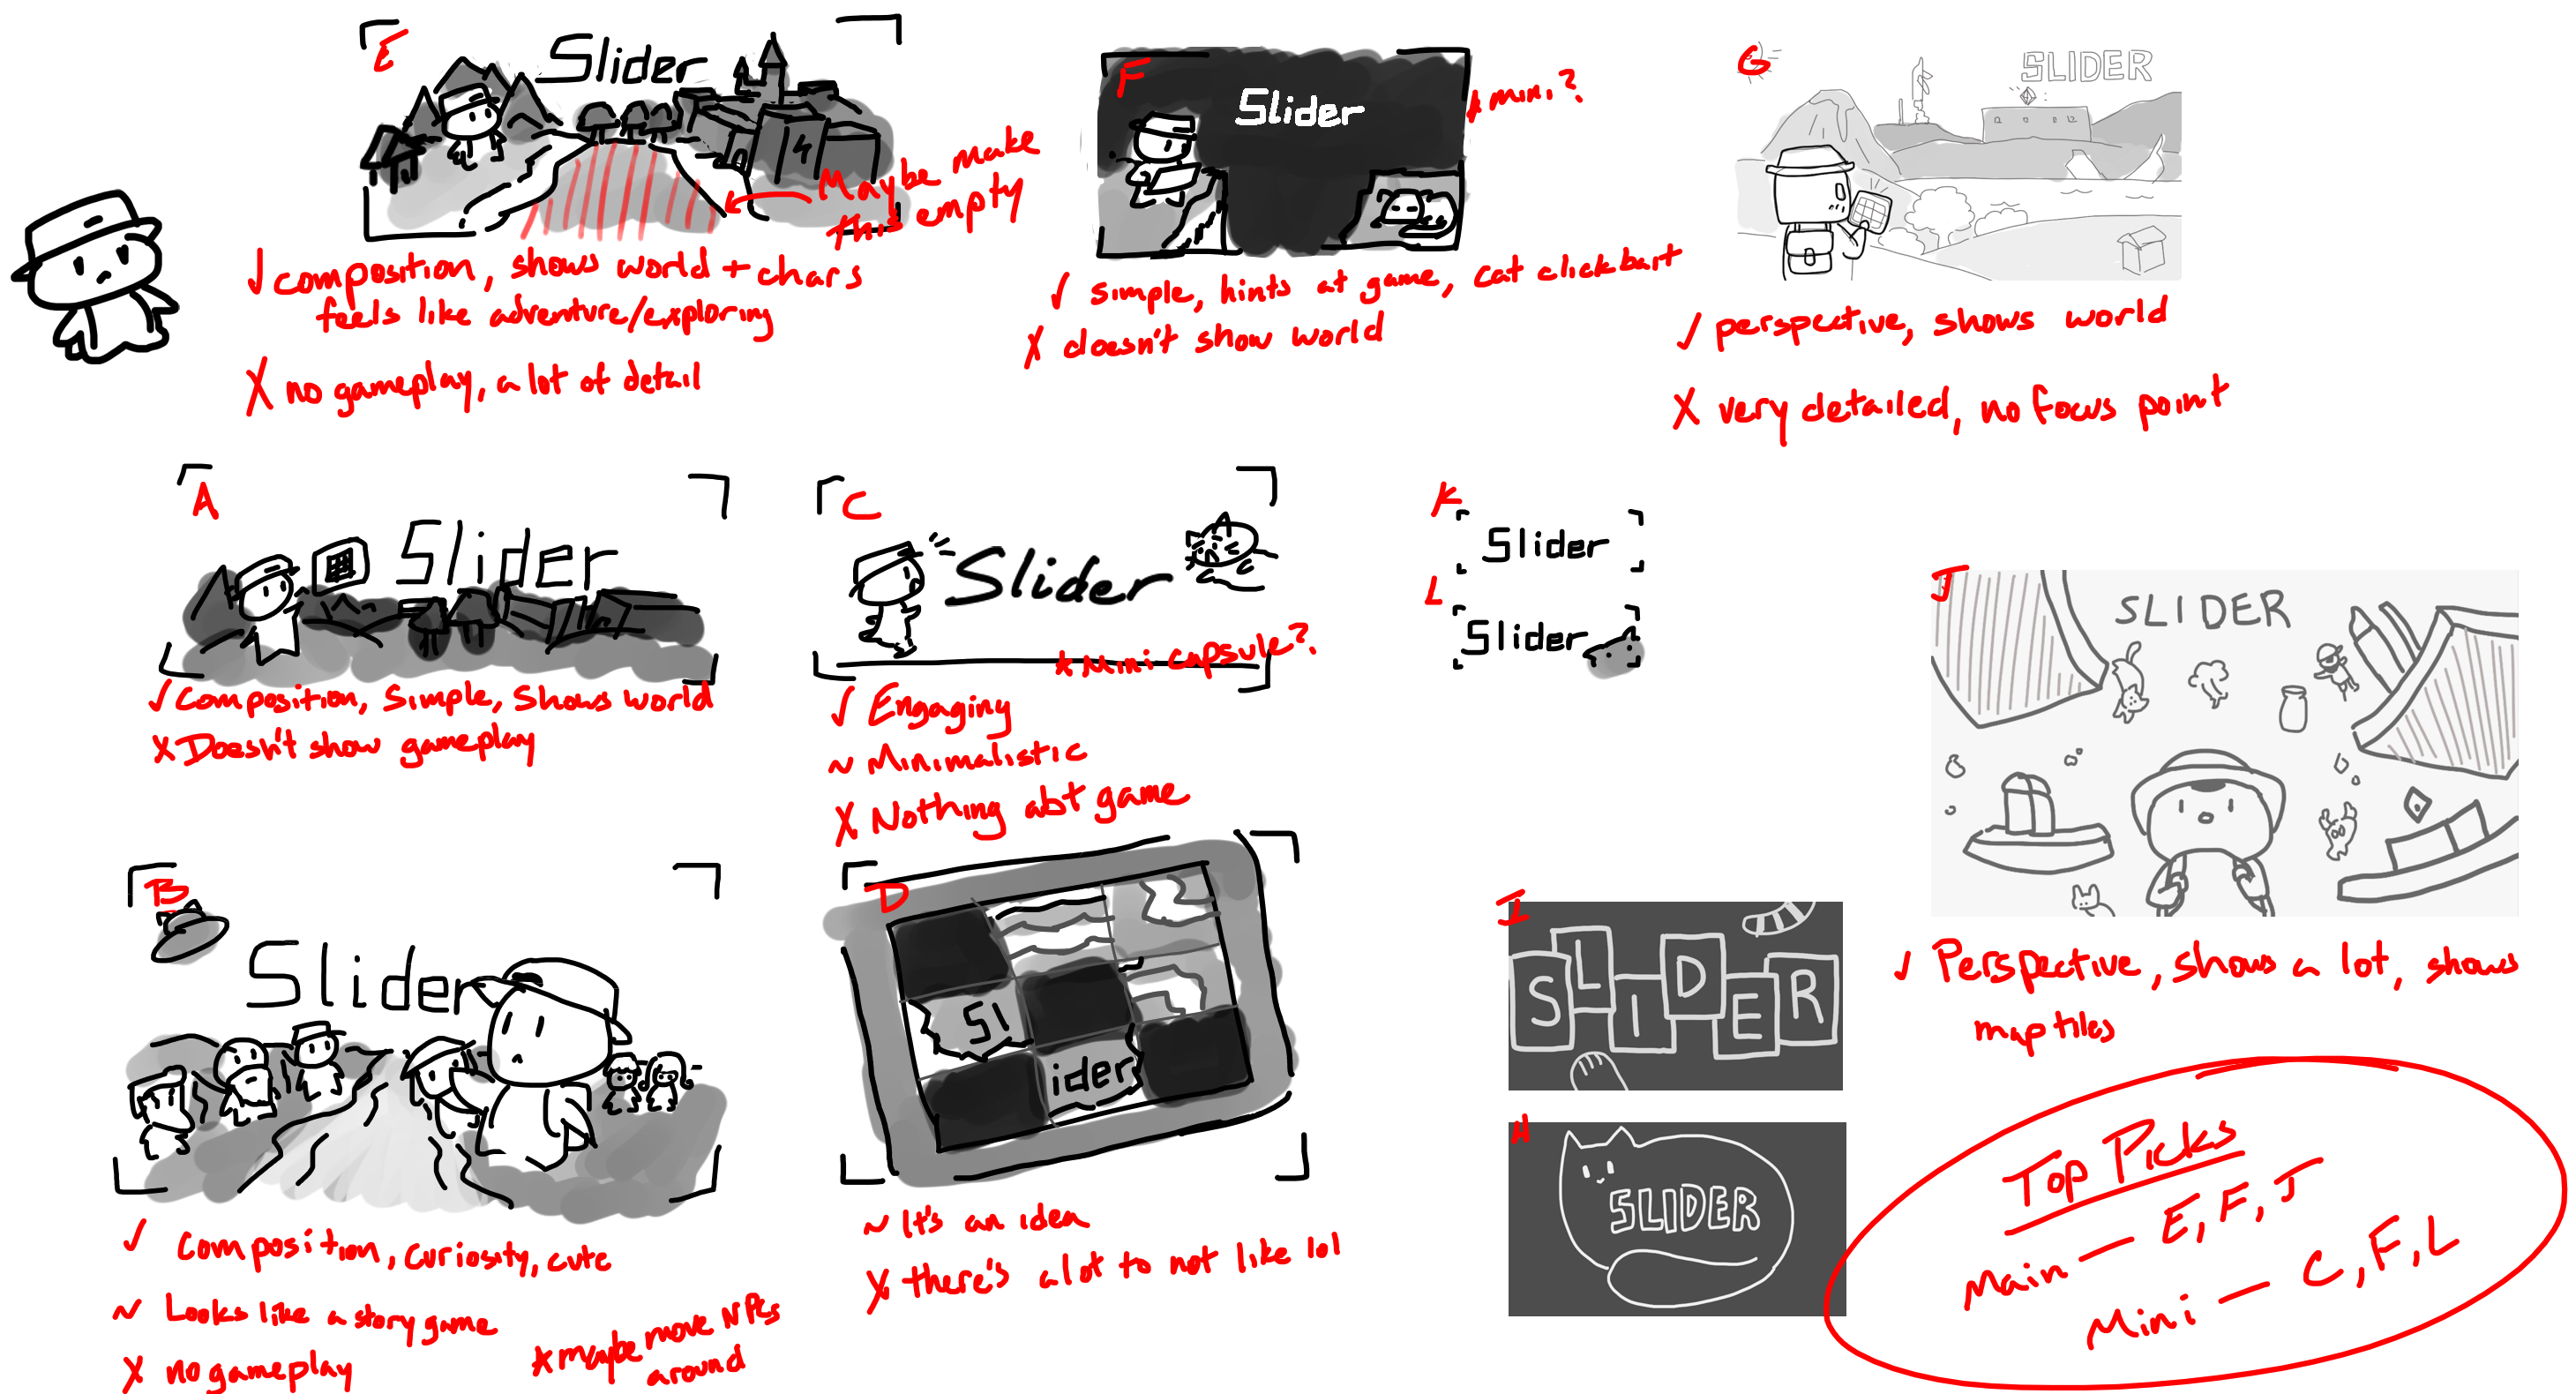 E
Slider
Maybe make
this empty
✓ composition, shows world + chars
feels like adventure/exploring
X no gameplay, a lot of detail
F
Slider
* mini?
✓ simple, hints at game, cat clickbait
X doesn't show world
G
SLIDER
✓ perspective, shows world
X very detailed, no focus point
A
Slider
✓ Composition, Simple, Shows world
X Doesn't show gameplay
C
Slider
* Mini capsule?
✓ Engaging
~ Minimalistic
X Nothing abt game
K
Slider
L
Slider
J
SLIDER
✓ Perspective, shows a lot, shows
map tiles
B
Slider
✓ composition, curiosity, cute
~ Looks like a story game
X no gameplay
* maybe move NPCs
around
D
Sl
ider
~ It's an idea
X there's a lot to not like lol
I
SLIDER
H
SLIDER
Top Picks
Main — E, F, J
Mini — C, F, L